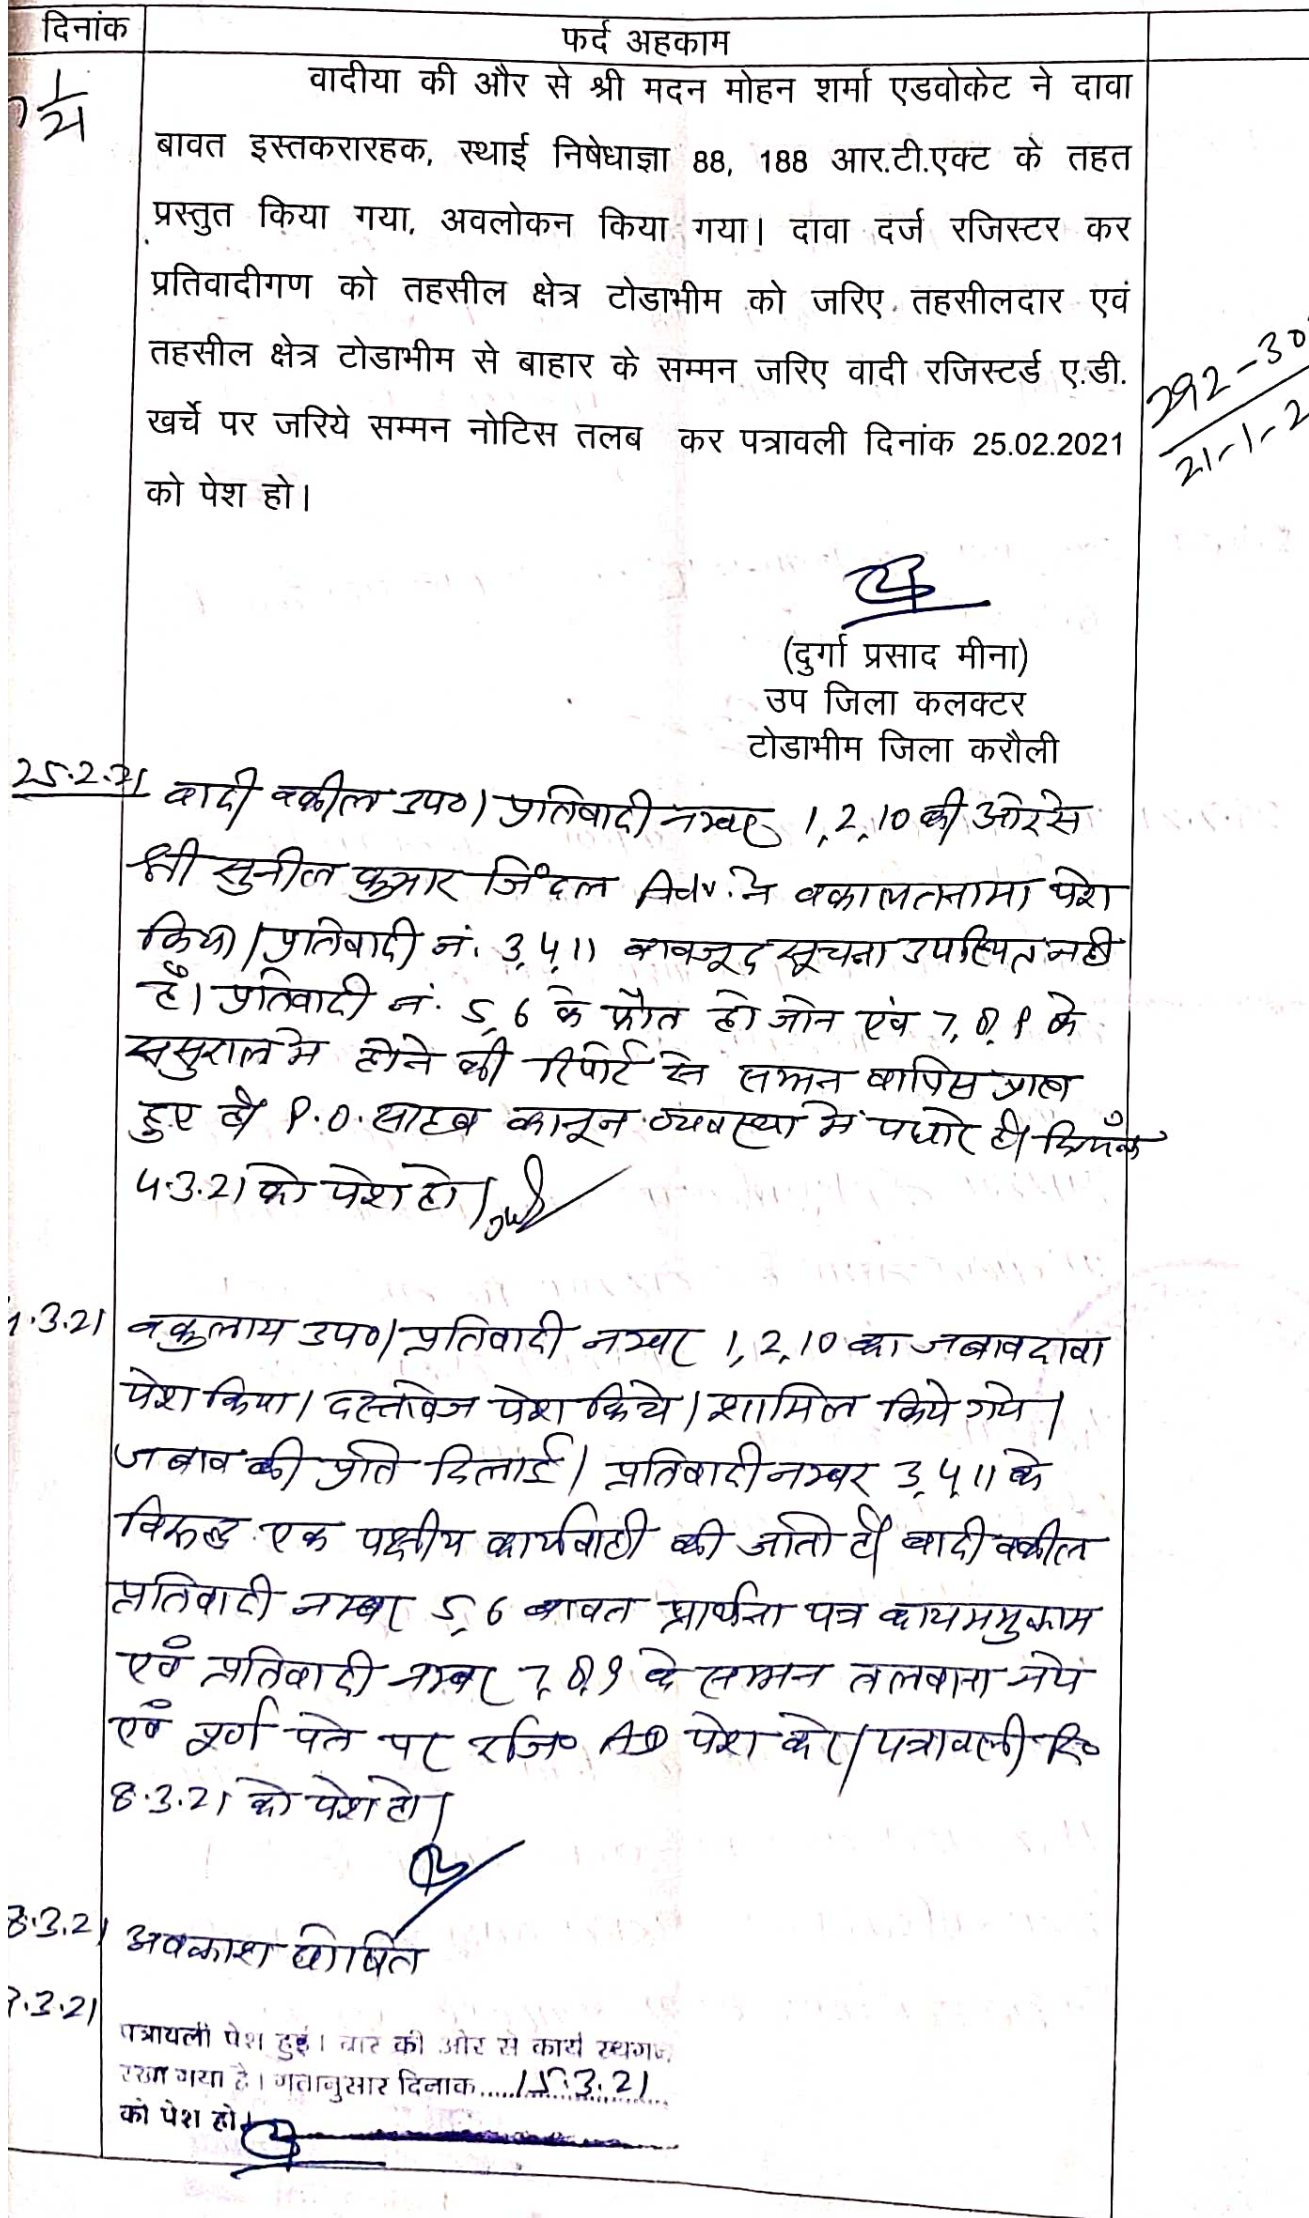 दिनांक
फर्द अहकाम
1/21
वादीया की और से श्री मदन मोहन शर्मा एडवोकेट ने दावा
बावत इस्तकरारहक, स्थाई निषेधाज्ञा 88, 188 आर.टी.एक्ट के तहत
प्रस्तुत किया गया, अवलोकन किया गया। दावा दर्ज रजिस्टर कर
प्रतिवादीगण को तहसील क्षेत्र टोडाभीम को जरिए तहसीलदार एवं
तहसील क्षेत्र टोडाभीम से बाहार के सम्मन जरिए वादी रजिस्टर्ड ए.डी.
खर्चे पर जरिये सम्मन नोटिस तलब कर पत्रावली दिनांक 25.02.2021
को पेश हो।
292-30
21-1-2
(दुर्गा प्रसाद मीना)
उप जिला कलक्टर
टोडाभीम जिला करौली
25.2.21 वादी वकील उप०। प्रतिवादी नम्बर 1,2,10 की ओर से
श्री सुनील कुमार जिंदल Adv. ने वकालतनामा पेश
किया। प्रतिवादी नं. 3,4,11 बावजूद सूचना उपस्थित नही
है। प्रतिवादी नं. 5,6 के फौत हो जाने एवं 7,8,9 के
ससुराल मे होने की रिपोर्ट से सम्मन वापिस प्राप्त
हुए है P.O. साहब कानून व्यवस्था में पधारे है।
4.3.21 को पेश हो।
4.3.21 वकुलाय उप०। प्रतिवादी नम्बर 1,2,10 का जबाव दावा
पेश किया। दस्तावेज पेश किये। शामिल किये गये।
जबाव की प्रति दिलाई। प्रतिवादी नम्बर 3,4,11 के
विरूद्ध एक पक्षीय कार्यवाही की जाती है। वादी वकील
प्रतिवादी नम्बर 5,6 बावत प्रार्थना पत्र कायममुकाम
एवं प्रतिवादी नम्बर 7,8,9 के सम्मन तलवाना नये
एवं पूर्ण पते पर रजि० AD पेश करे। पत्रावली दि०
8.3.21 को पेश हो।
8.3.21 अवकाश घोषित
9.3.21
पत्रावली पेश हुई। बार की ओर से कार्य स्थगन
रखा गया है। गतानुसार दिनाक.....15.3.21
को पेश हो।